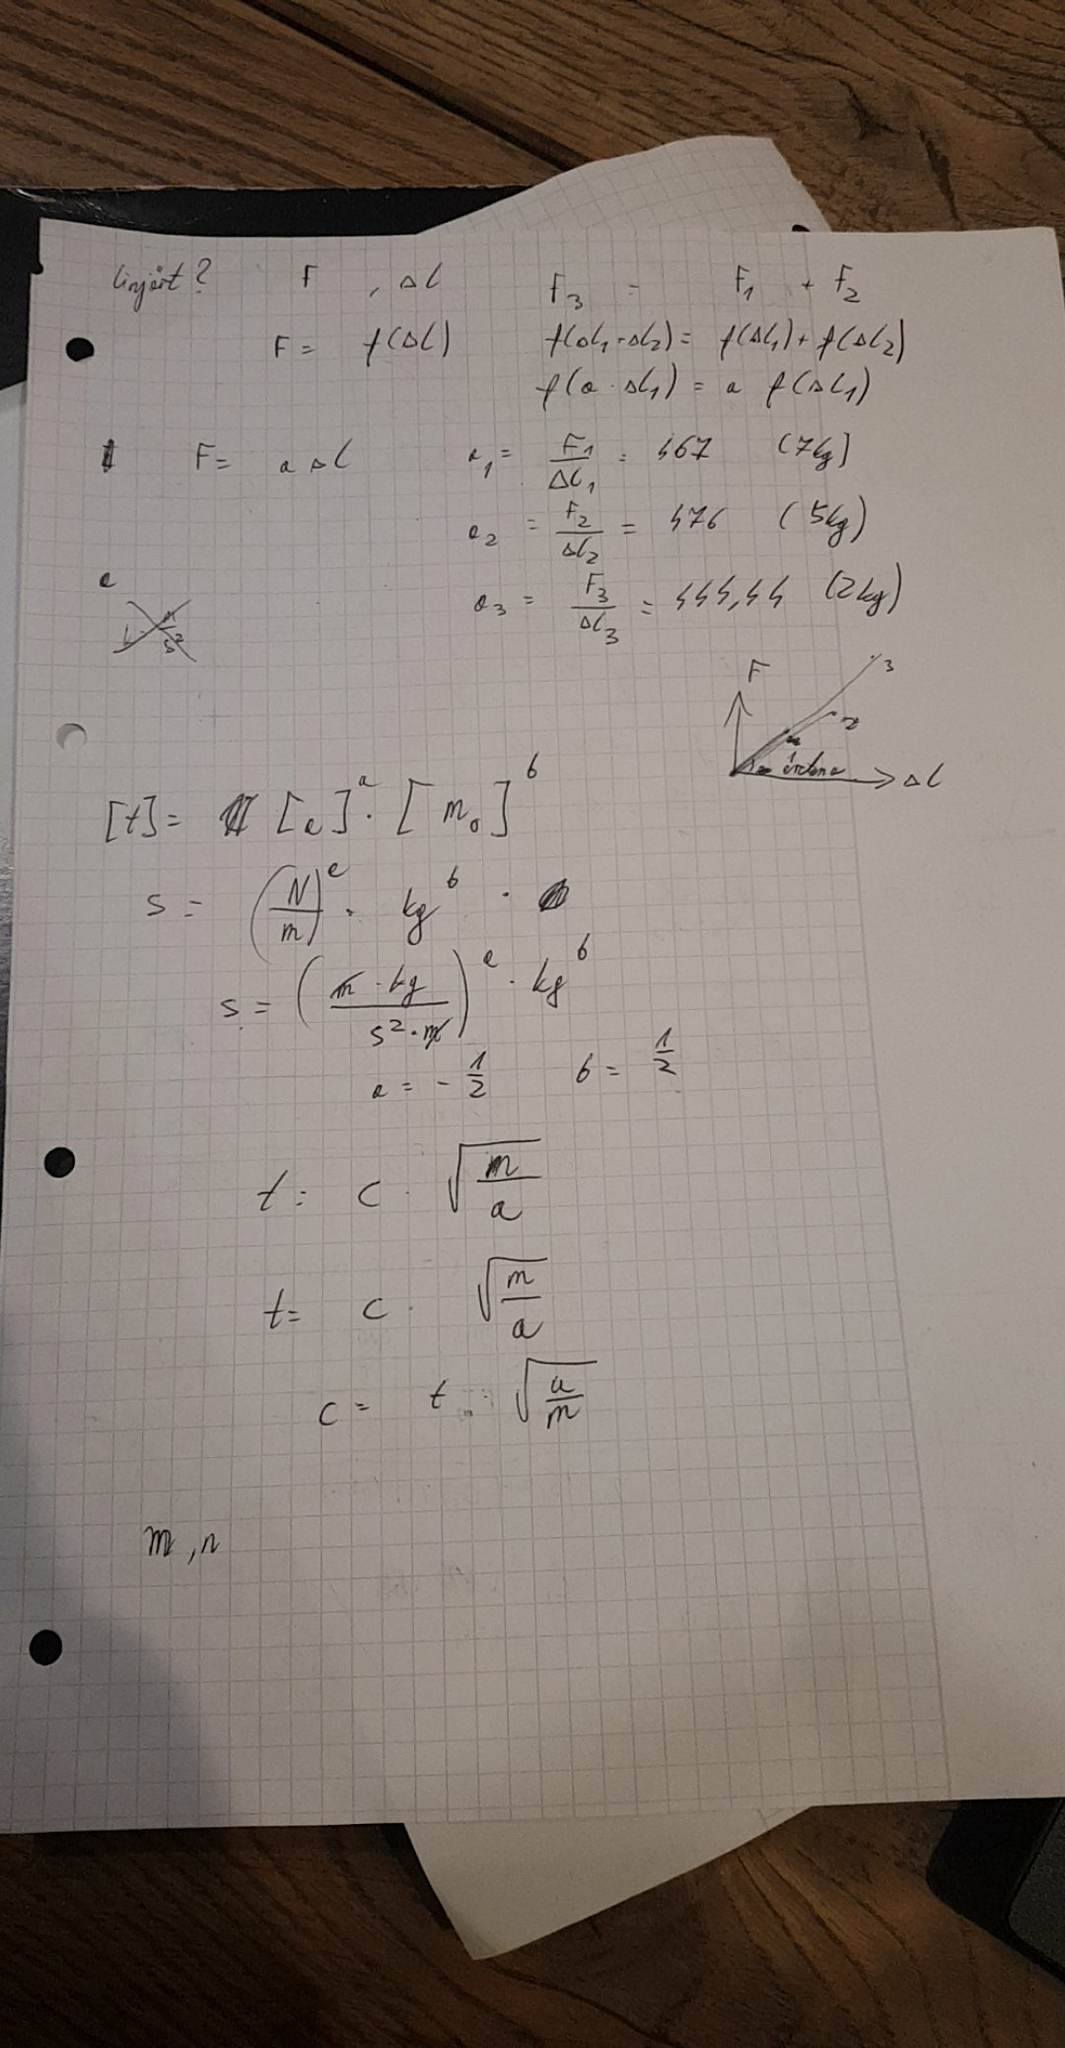 linjärt? F , Δl F₃ = F₁ + F₂
F = f(Δl) f(Δl₁+Δl₂) = f(Δl₁) + f(Δl₂)
f(a · Δl₁) = a f(Δl₁)
F = a Δl a₁ = F₁/Δl₁ = 467 (7kg)
a₂ = F₂/Δl₂ = 476 (5kg)
a
a₃ = F₃/Δl₃ = 444,44 (2kg)
F 3
2
Δl
[t] = [a]^a · [m₀]^b
s = (N/m)^a · kg^b ·
s = (m · kg / s² · m)^a · kg^b
a = - 1/2 b = 1/2
t = C · √(m/a)
t = C · √(m/a)
C = t · √(a/m)
m, n